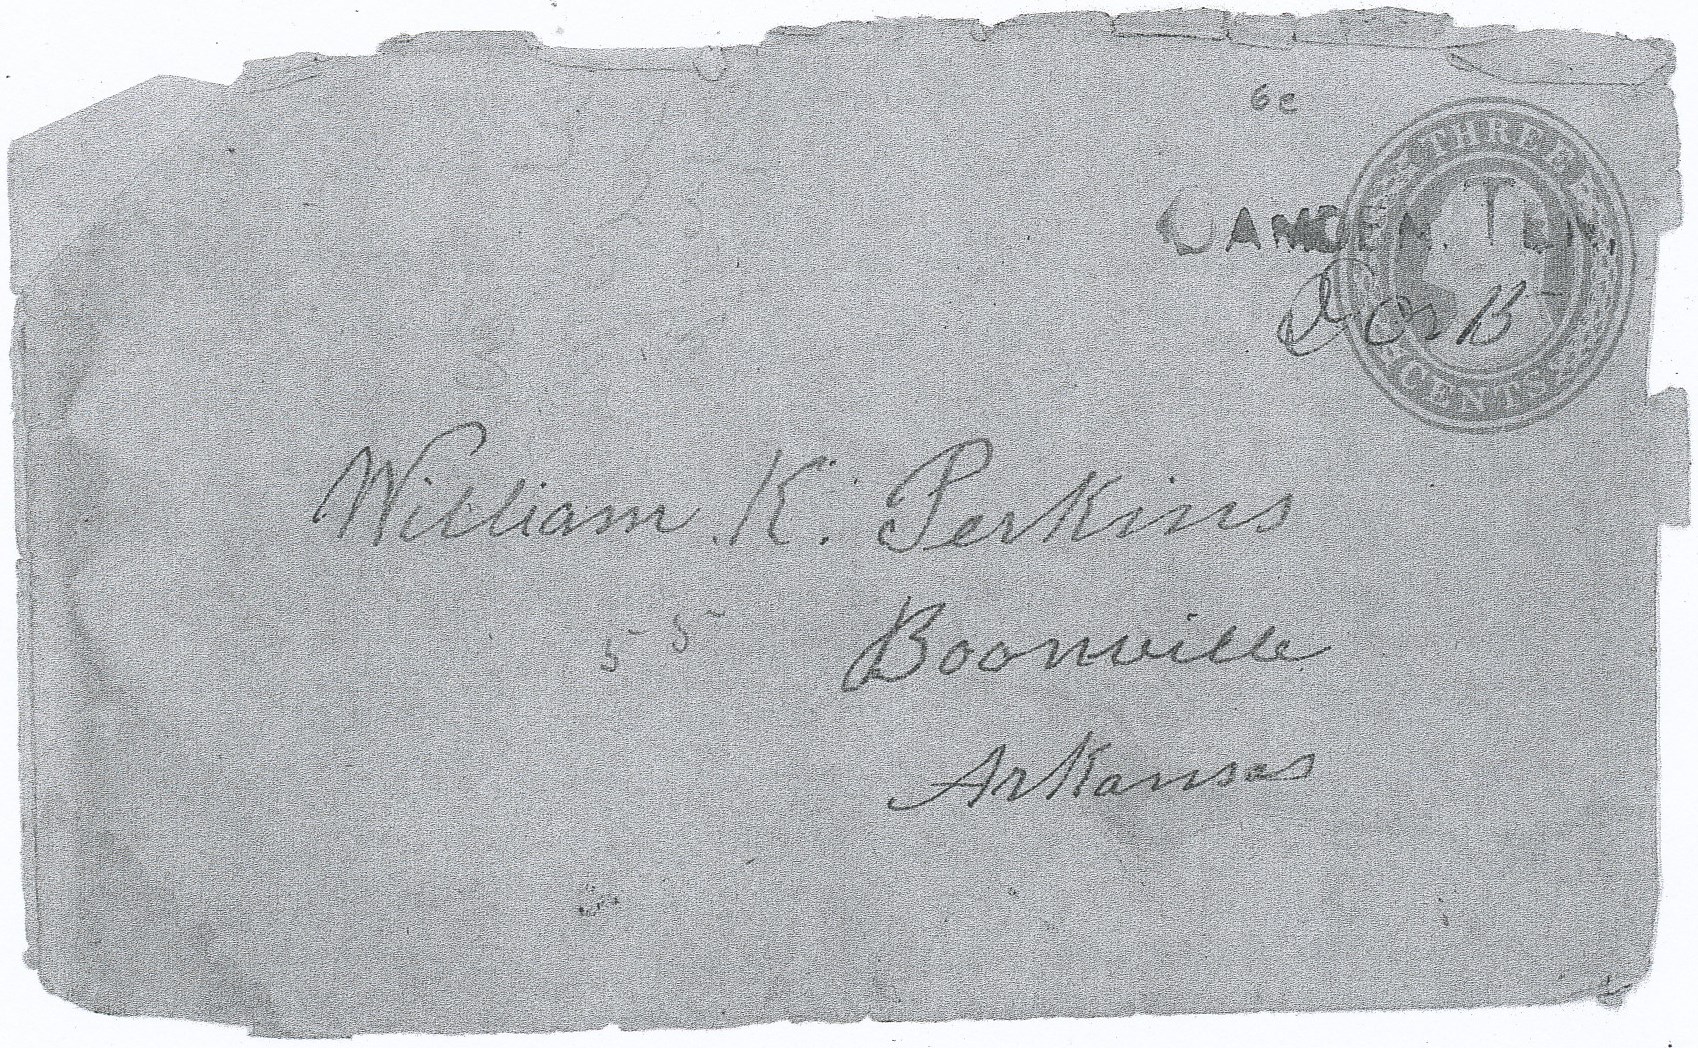 6c
THREE
CAMDEN. TEN.
CENTS
William K. Perkins
55
Boonville
Arkansas